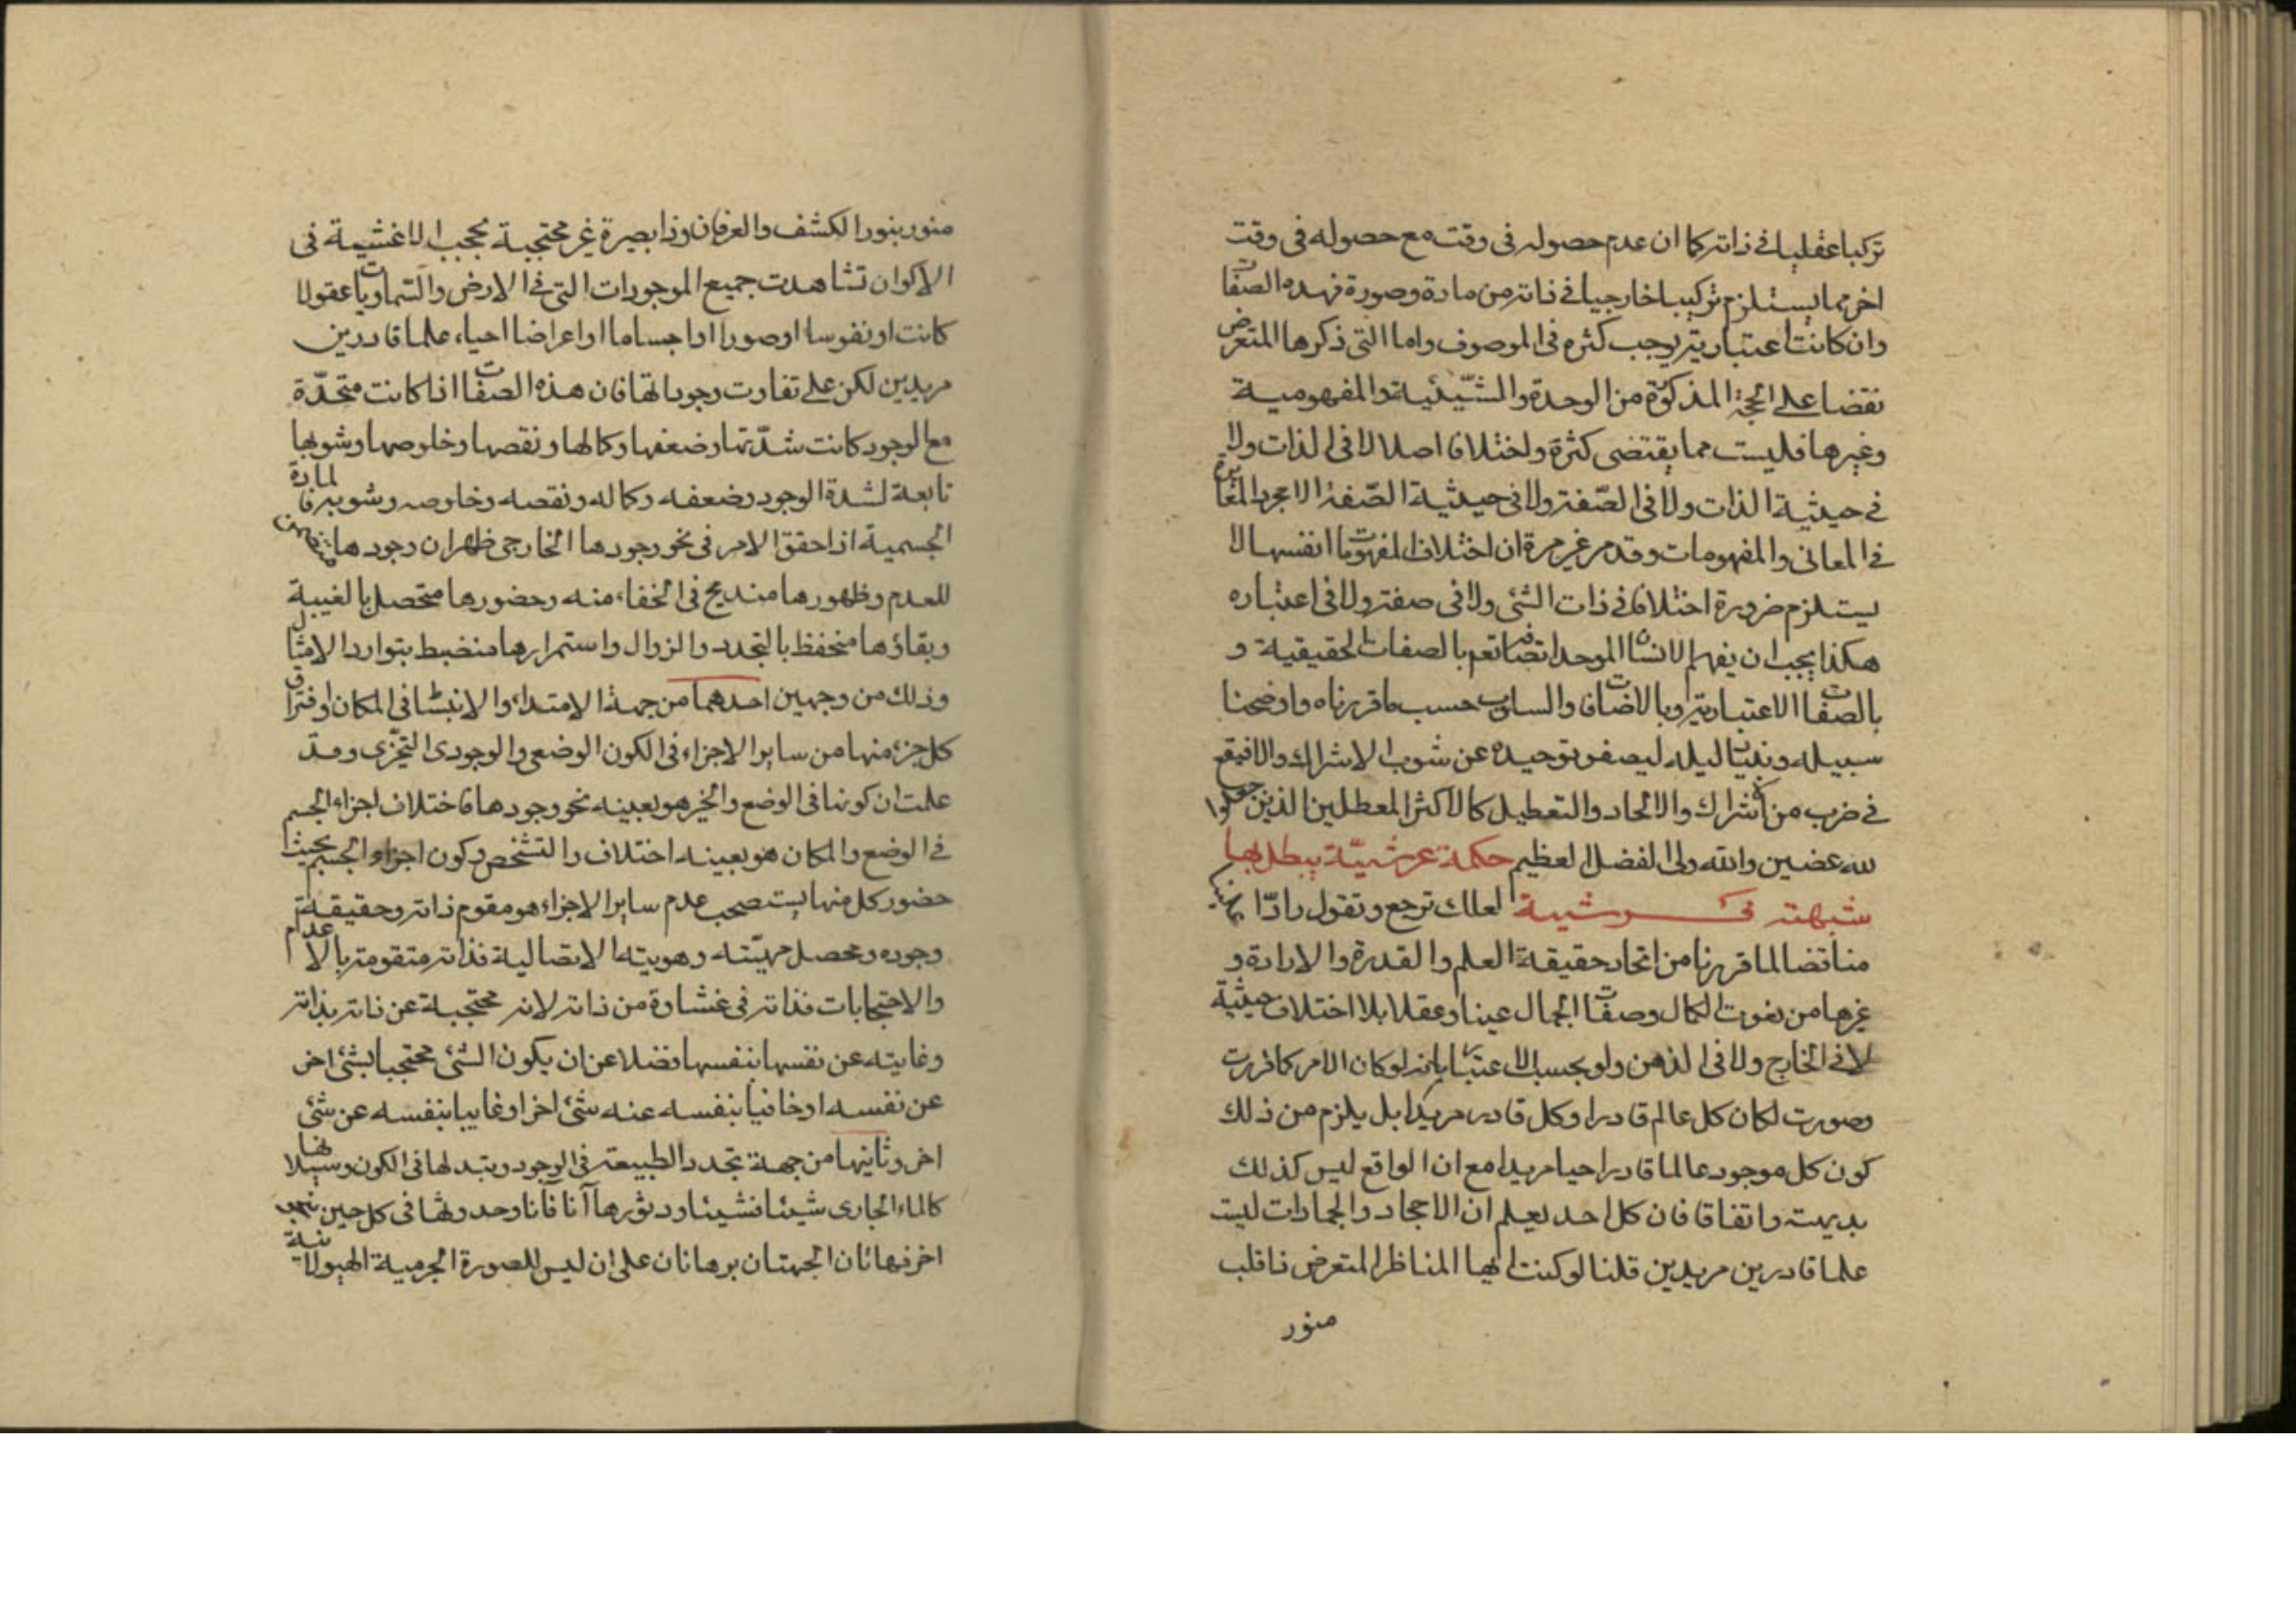 تركيبا عقليا في ذاته كما ان عدم حصوله في وقت مع حصوله في وقت
اخر مما يستلزم تركيبا خارجيا في ذاته من مادة وصورة فهذه الصفات
وان كانت اعتبارية يوجب كثرة في الموصوف واما التي ذكرها المتعرض
نقضا على الحجة المذكورة من الوحدة والشيئية والمفهومية
وغيرها فليست مما يقتضي كثرة ولختلافا اصلا لا في الذات ولا
في حيثية الذات ولا في الصفة ولا في حيثية الصفة الا مجرد المغايرة
في المعاني والمفهومات وقد مر غير مرة ان اختلاف المفهومات انفسها لا
يستلزم ضرورة اختلافا في ذات الشئ ولا في صفته ولا في اعتباره
هكذا يجب ان يفهم الانسان الموحد اتصافه تعم بالصفات الحقيقية و
بالصفات الاعتبارية وبالاضافات والسلوب حسب ما قررناه واوضحنا
سبيله وبينا ليله ليصفو توحيده عن شوب الاشراك والا فيقع
في ضرب من الاشراك والالحاد والتعطيل كالاكثر المعطلين الذين جعلوا
لله عضين والله ولي الفضل العظيم حكمة عرشية يبطل بها
شبهة فرشية لعلك ترجع وتقول رادا علينا
مناقضا لما قررنا من اتحاد حقيقة العلم والقدرة والارادة و
غيرها من نعوت الكمال وصفات الجمال عينا وعقلا بلا اختلاف حيثية
لا في الخارج ولا في الذهن ولو بحسب الاعتبار بانه لو كان الامر كما قررت
وصورت لكان كل عالم قادرا وكل قادر مريدا بل يلزم من ذلك
كون كل موجود عالما قادرا حيا مريدا مع ان الواقع ليس كذلك
بديهة واتفاقا فان كل احد يعلم ان الاحجار والجمادات ليست
علما قادرين مريدين قلنا لو كنت ايها المناظر المتعرض ذا قلب
منور
منور بنور الكشف والعرفان وذا بصيرة غير محتجبة بحجب الاغشية في
الاكوان تشاهدت جميع الموجودات التي في الارض والسماويات عقولا
كانت او نفوسا او صورا او اجساما او اعراضا احياء علما قادرين
مريدين لكن على تفاوت وجوداتها فان هذه الصفات اذا كانت متحدة
مع الوجود كانت شدتها وضعفها وكمالها ونقصها وخلوصها وشوبها
تابعة لشدة الوجود وضعفه وكماله ونقصه وخلوصه وشوبه فالمادة
الجسمية اذا حقق الامر في نحو وجودها الخارجي ظهر ان وجودها متضمن
للعدم وظهورها مندمج في الخفاء منه وحضورها متحصل بالغيبة
وبقاؤها منحفظ بالتجدد والزوال واستمرارها منضبط بتوارد الامثال
وذلك من وجهين احدهما من جهة الامتداد والانبساط في المكان وافتراق
كل جزء منها من ساير الاجزاء في الكون الوضعي والوجودي التحيزي وقد
علمت ان كونها في الوضع والحيز هو بعينه نحو وجودها فاختلاف اجزاء الجسم
في الوضع والمكان هو بعينه اختلاف والتشخص وكون اجزاء الجسم بحيث
حضور كل منها يستصحب عدم ساير الاجزاء هو مقوم ذاته وحقيقة
وجوده ومحصل مهيته وهويته الاتصالية فذاته متقومة بالاعدام
والاحتجابات فذاته في غشاوة من ذاته لانه محتجبة عن ذاته بذاته
وغايبته عن نفسها بنفسها فضلا عن ان يكون الشئ محتجبا بشئ اخر
عن نفسه او خافيا بنفسه عنه شئ اخر او غايبا بنفسه عن شئ
اخر وثانيها من جهة تجدد الطبيعة في الوجود وتبدلها في الكون وسيلانها
كالماء الجاري شيئا فشيئا ودثورها آنا فآنا وحدوثها في كل حين
اخر فهاتان الجهتان برهانان على ان ليس للصورة الجرمية الهيولانية